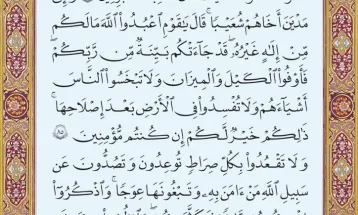 مَدْيَنَ أَخَاهُمْ شُعَيْبًا ۗ قَالَ يَٰقَوْمِ ٱعْبُدُوا۟ ٱللَّهَ مَا لَكُم
مِّنْ إِلَٰهٍ غَيْرُهُۥ ۖ قَدْ جَآءَتْكُم بَيِّنَةٌ مِّن رَّبِّكُمْ ۖ
فَأَوْفُوا۟ ٱلْكَيْلَ وَٱلْمِيزَانَ وَلَا تَبْخَسُوا۟ ٱلنَّاسَ
أَشْيَآءَهُمْ وَلَا تُفْسِدُوا۟ فِى ٱلْأَرْضِ بَعْدَ إِصْلَٰحِهَا ۚ
ذَٰلِكُمْ خَيْرٌ لَّكُمْ إِن كُنتُم مُّؤْمِنِينَ ٨٥
وَلَا تَقْعُدُوا۟ بِكُلِّ صِرَٰطٍ تُوعِدُونَ وَتَصُدُّونَ عَن
سَبِيلِ ٱللَّهِ مَنْ ءَامَنَ بِهِۦ وَتَبْغُونَهَا عِوَجًا ۚ وَٱذْكُرُوٓا۟